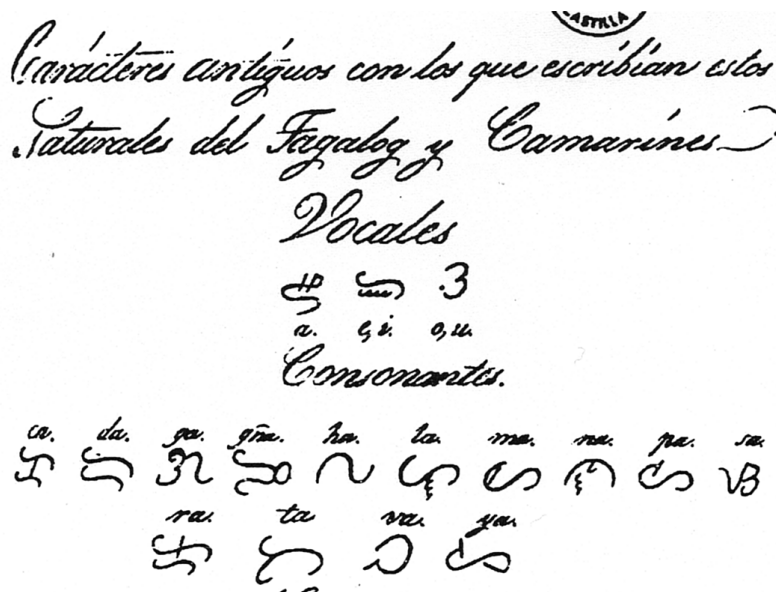 CASTILLA
Carácteres antiguos con los que escribían estos
Naturales del Tagalog y Camarines
Vocales
ᜀ ᜁ ᜂ
a. e, i. o, u.
Consonantes.
ca. da. ga. gña. ha. la. ma. na. pa. sa.
ra. ta va. ya.